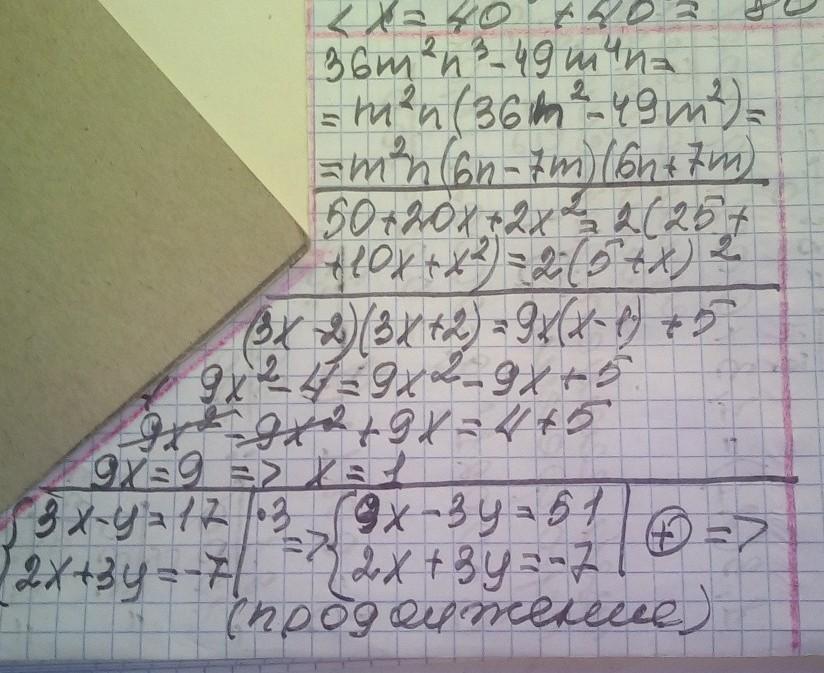 < x = 40 + 40 = 80
36m²n³-49m⁴n=
=m²n(36m²-49m²)=
=m²n(6n-7m)(6n+7m)
50+20x+2x²=2(25+
+10x+x²)=2(5+x)²
(3x-2)(3x+2)=9x(x-1)+5
9x²-4=9x²-9x+5
9x²-9x²+9x=4+5
9x=9 => x=1
{3x-y=17 |·3 => {9x-3y=51 | ⊕ =>
2x+3y=-7 2x+3y=-7
(продолжение)